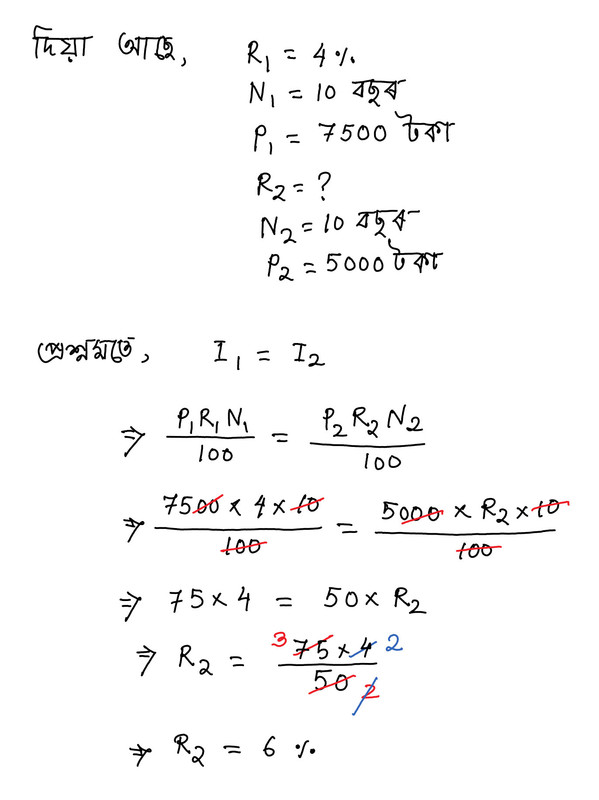 দিয়া আছে, R₁ = 4%
N₁ = 10 বছৰ
P₁ = 7500 টকা
R₂ = ?
N₂ = 10 বছৰ
P₂ = 5000 টকা
প্ৰশ্নমতে, I₁ = I₂
⇒ P₁R₁N₁/100 = P₂R₂N₂/100
⇒ 7500 × 4 × 10/100 = 5000 × R₂ × 10/100
⇒ 75 × 4 = 50 × R₂
⇒ R₂ = 3 75 × 4 2/50 2
⇒ R₂ = 6 %